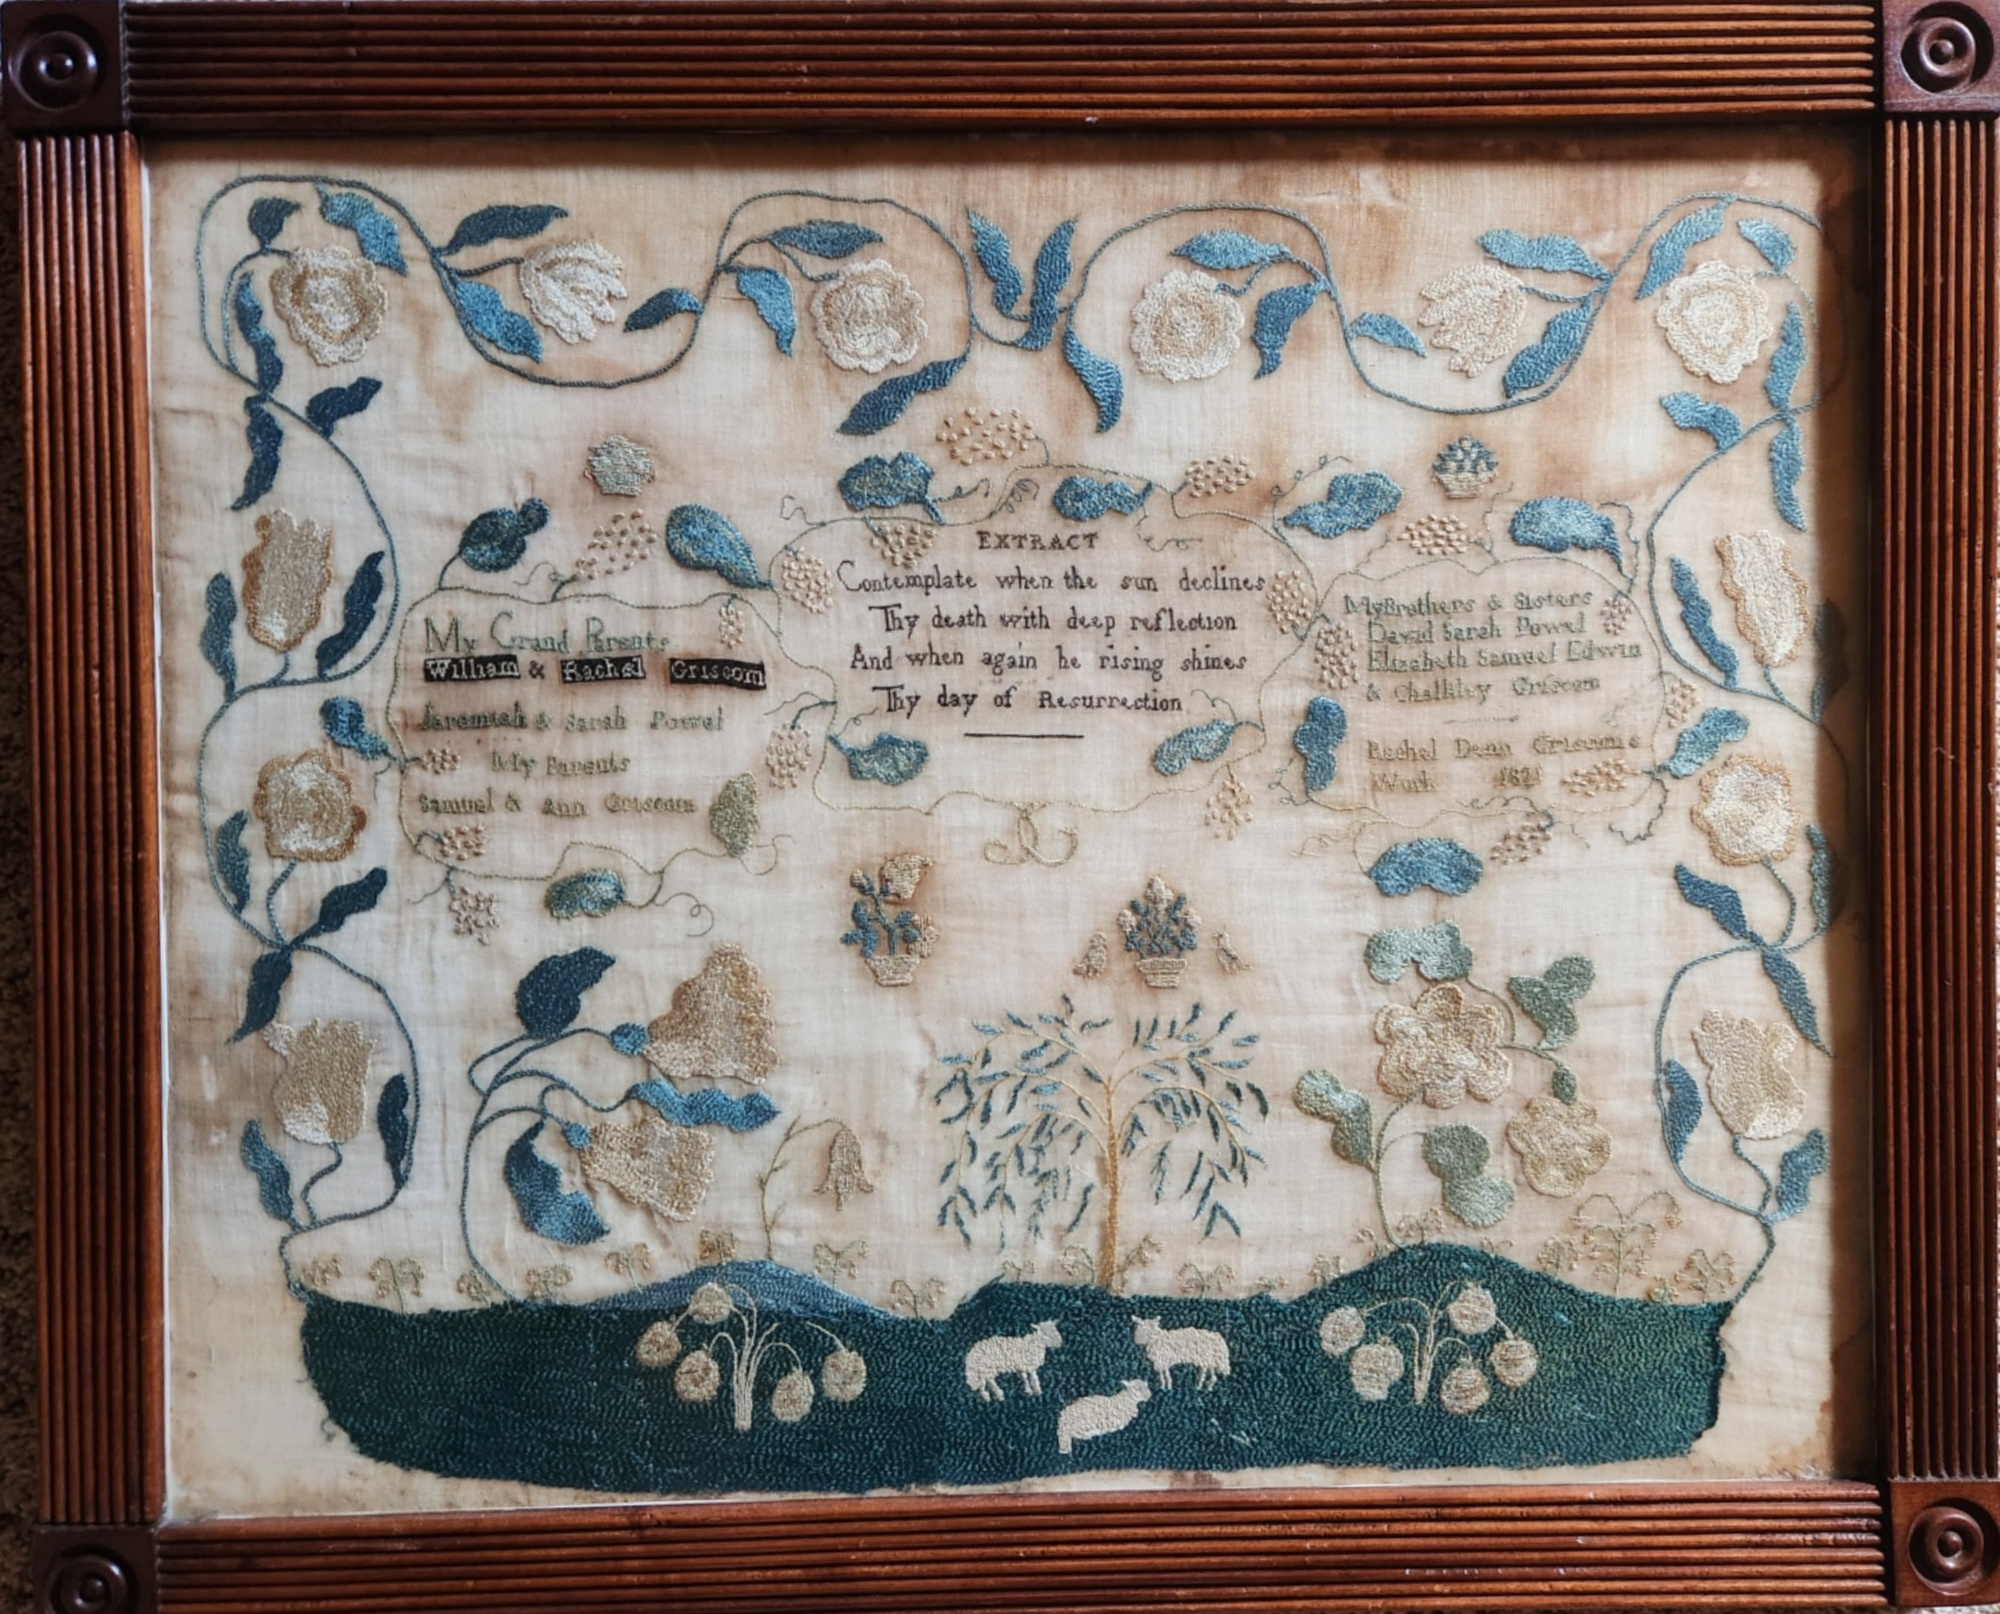 My Grand Parents
William & Rachel Griscom
Jeremiah & Sarah Powel
My Parents
Samuel & Ann Griscom
EXTRACT
Contemplate when the sun declines
Thy death with deep reflection
And when again he rising shines
Thy day of Resurrection
My Brothers & Sisters
David Sarah Powel
Elizabeth Samuel Edwin
& Chalkley Griscom
Rachel Denn Griscom's
Work 1821